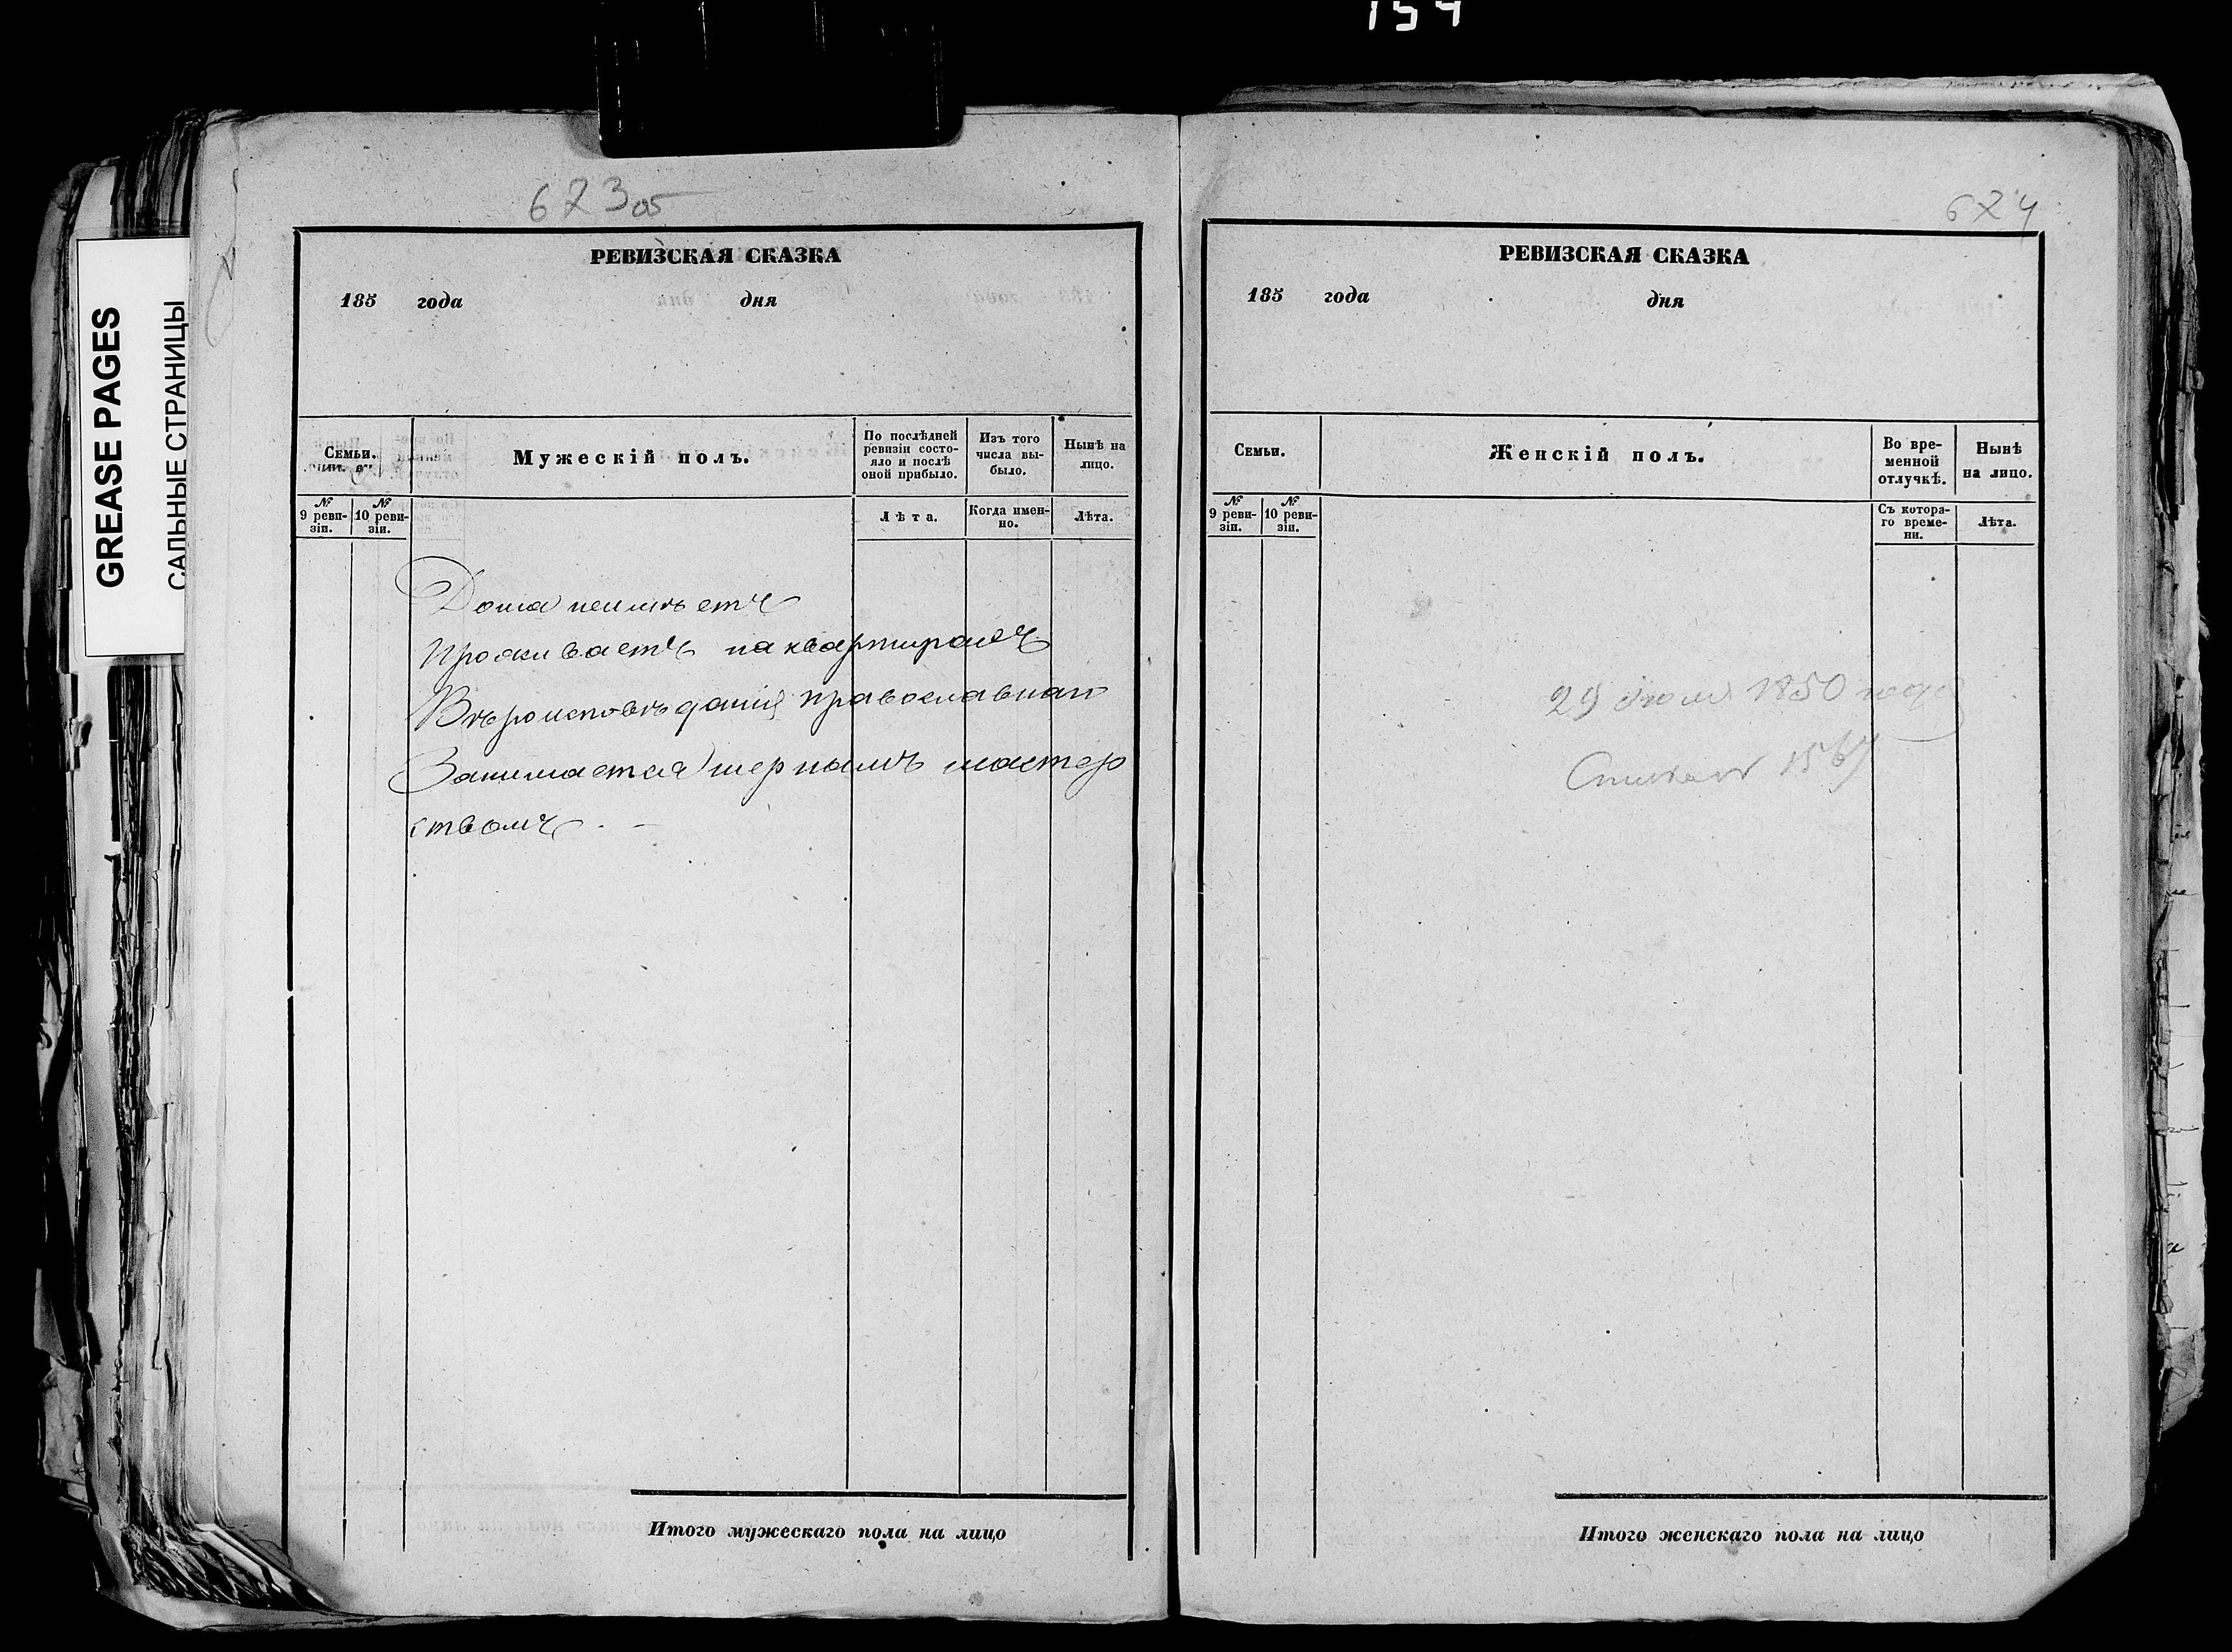 154
GREASE PAGES
САЛЬНЫЕ СТРАНИЦЫ
673 об
РЕВИЗСКАЯ СКАЗКА
185 года дня
Семьи.
Мужескій полъ.
По послѣдней ревизіи состояло и послѣ оной прибыло.
Изъ того числа выбыло.
Нынѣ на лицо.
№ 9 ревизіи.
№ 10 ревизіи.
Лѣта.
Когда именно.
Лѣта.
Дома неимѣетъ
Проживаетъ на квартирахъ
Вѣроисповѣданія православнаго
Занимается чернымъ мастер
ствомъ. -
Итого мужескаго пола на лицо
674
РЕВИЗСКАЯ СКАЗКА
185 года дня
Семьи.
Женскій полъ.
Во временной отлучкѣ.
Нынѣ на лицо.
№ 9 ревизіи.
№ 10 ревизіи.
Съ котораго времени.
Лѣта.
29 1850 года
Итого женскаго пола на лицо